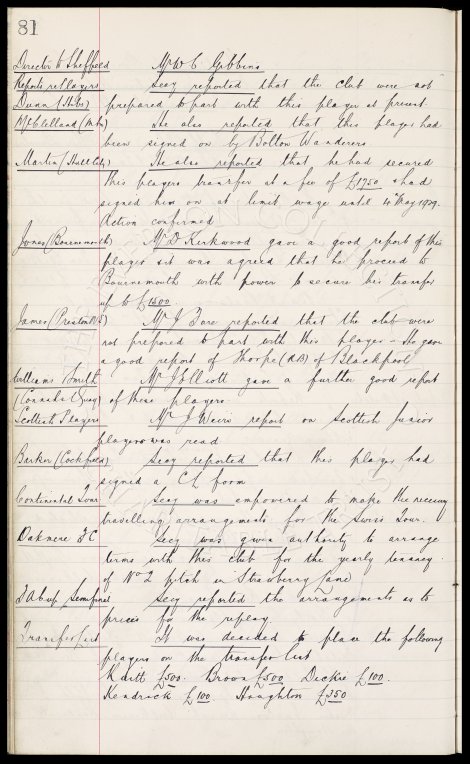 81
Director to Sheffield Mr W C Gibbins
Reports re Players Secy reported that the club were not
Dunn (Hibs) prepared to part with this player at present
McClelland (M'bro) He also reported that this player had
been signed on by Bolton Wanderers
Martin (Hull City) He also reported that he had secured
this players transfer at a fee of £1750 & had
signed him on at limit wage until 4th May 1929.
Action confirmed
(Bournemouth) Mr D Kirkwood gave a good report of this
player & it was agreed that he proceed to
Bournemouth with power to secure his transfer
up to £1500
James (Preston N E) Mr J Fare reported that the club were
not prepared to part with this player - He gave
a good report of Thorpe (RB) of Blackpool
Williams Smith Mr J Elliott gave a further good report
(Connahs Quay) of these players
Scottish Players Mr J Weirs report on Scottish Junior
players was read
Barker (Cockfield) Secy reported that this player had
signed a CL form
Continental Tour Secy was empowered to make the necessy
travelling arrangements for the Swiss Tour.
Oakmere F C Secy was given authority to arrange
terms with this club for the yearly tenancy
of No 2 pitch in Strawberry Lane
F A Cup Semifinal Secy reported the arrangements as to
prices for the replay
Transfer List It was decided to place the following
players on the transfer list
Raitt £500. Brown £500 Dickie £100.
Kendrick £100 Houghton £350